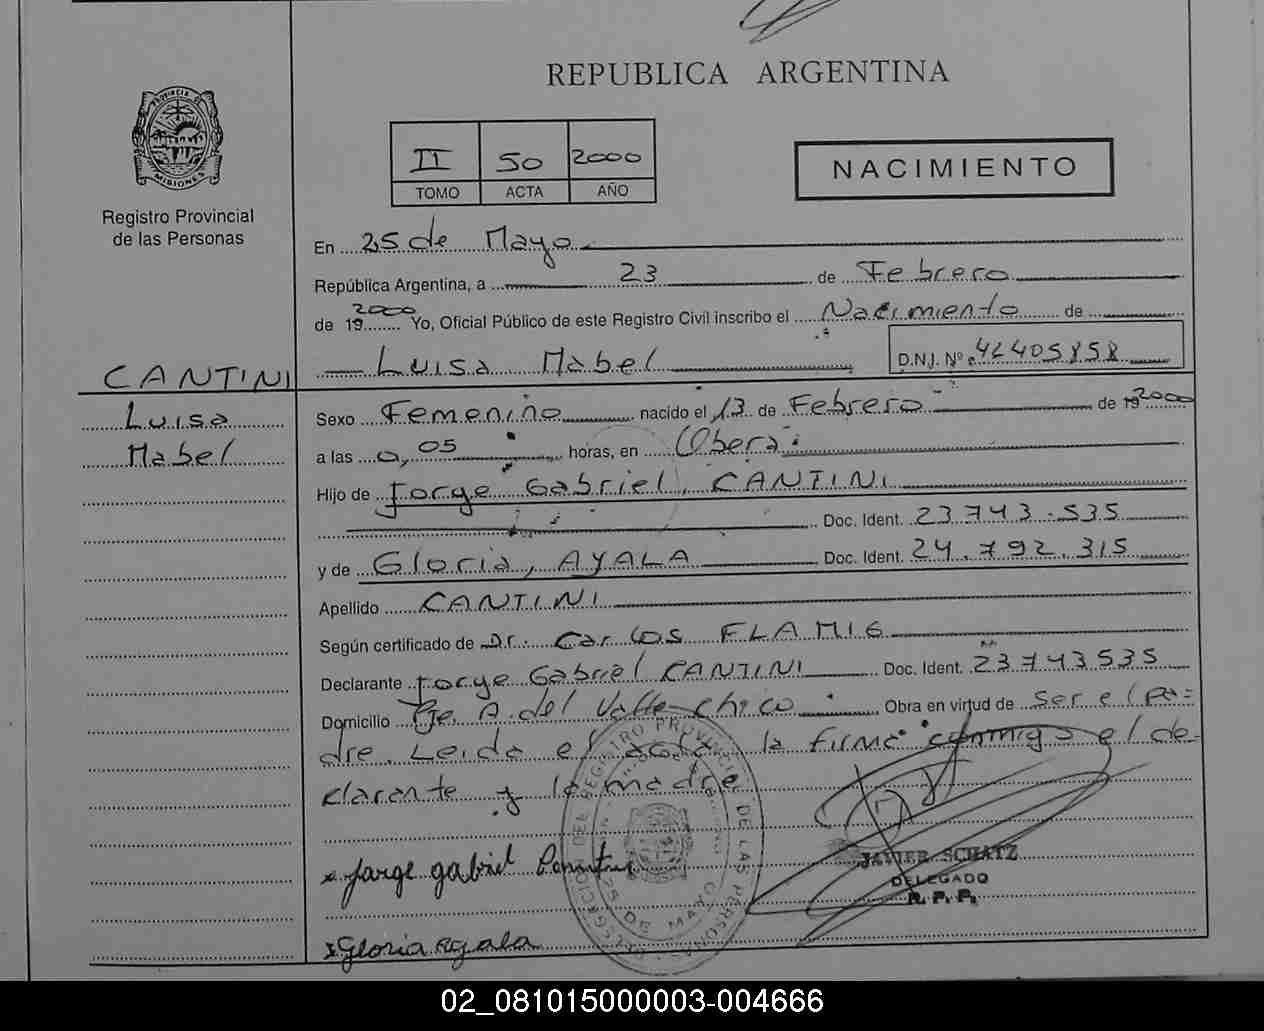 REPUBLICA ARGENTINA
PROVINCIA DE MISIONES
Registro Provincial
de las Personas
II 50 2000
TOMO ACTA AÑO
NACIMIENTO
En 25 de Mayo
República Argentina, a 23 de Febrero
de 19 2000 Yo, Oficial Público de este Registro Civil inscribo el Nacimiento de
Luisa Mabel D.N.I. Nº 42405858
CANTINI
Luisa
Mabel
Sexo Femenino nacido el 13 de Febrero de 19 2000
a las 0,05 horas, en Oberá
Hijo de Jorge Gabriel, CANTINI
Doc. Ident. 23743.535
y de Gloria, AYALA Doc. Ident. 24.792.315
Apellido CANTINI
Según certificado de Dr. Carlos FLAMIG
Declarante Jorge Gabriel CANTINI Doc. Ident. 23743535
Domicilio Pje. A. del Valle chico Obra en virtud de ser el pa=
dre. Leida el acta, la firma conmigo el de-
clarante y la madre
REGISTRO PROVINCIAL DE LAS PERSONAS
25 DE MAYO
JAVIER SCHATZ
DELEGADO
R. P. P.
x Jorge gabriel Cantini
x Gloria ayala
02_081015000003-004666